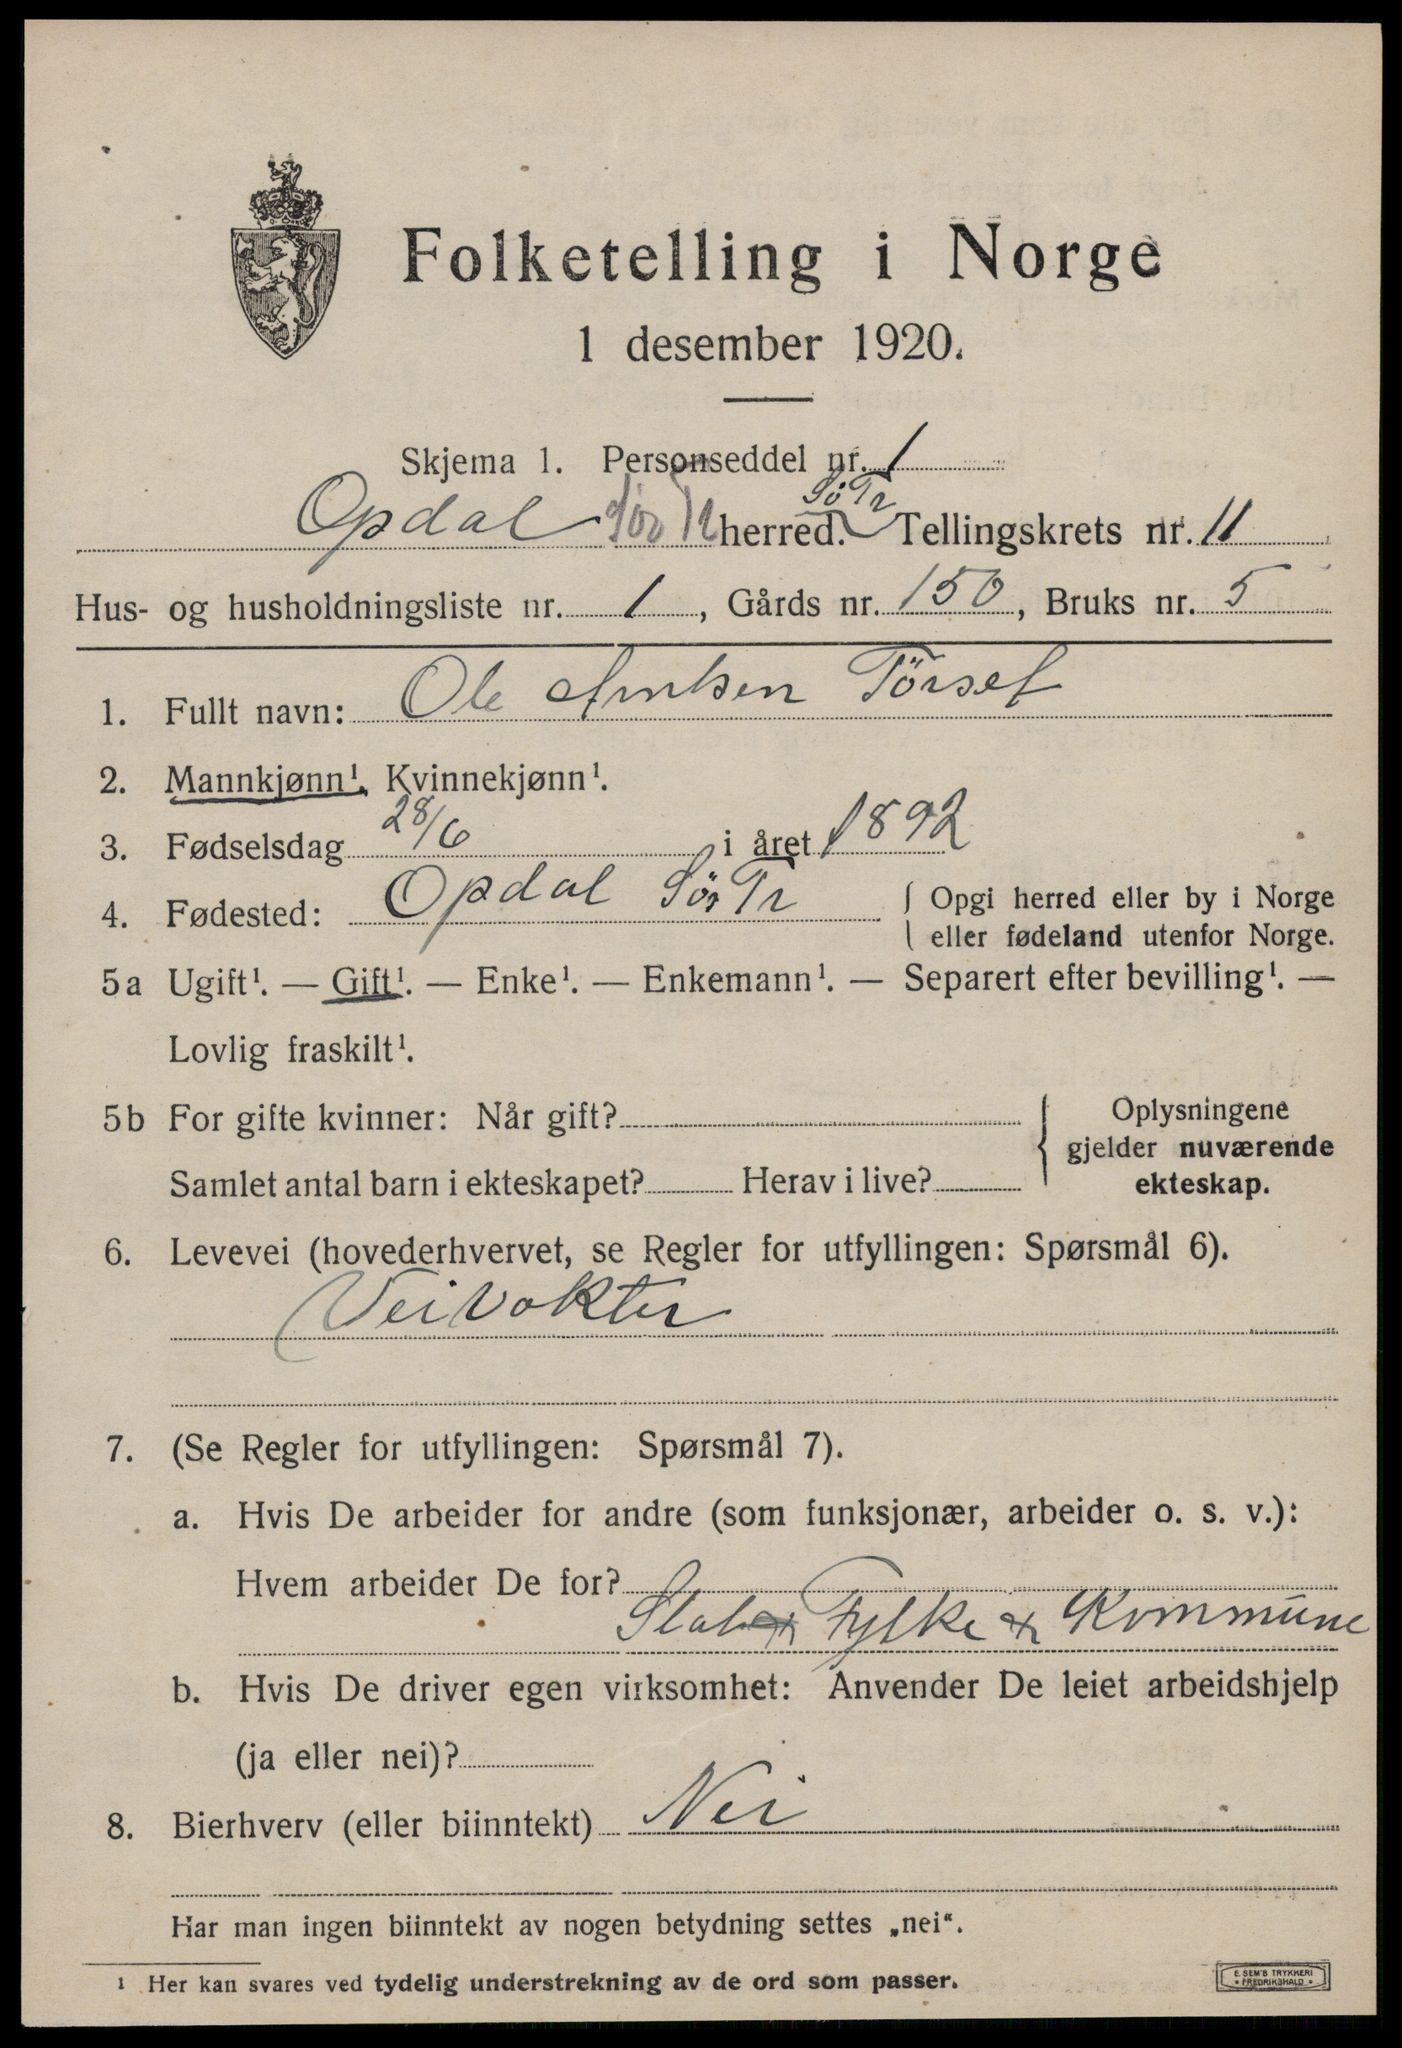 Folketelling i Norge
1 desember 1920.
Skjema 1. Personseddel nr. 1
Opdal Sör Tr herred. Sö Tr Tellingskrets nr. 11
Hus- og husholdningsliste nr. 1, Gårds nr. 150, Bruks nr. 5
1. Fullt navn: Ole Arntsen Törset
2. Mannkjønn¹. Kvinnekjønn¹.
3. Fødselsdag 28/6 i året 1892
4. Fødested: Opdal Sör Tr { Opgi herred eller by i Norge
eller fødeland utenfor Norge.
5a Ugift¹. — Gift¹. — Enke¹. — Enkemann¹. — Separert efter bevilling¹. —
Lovlig fraskilt¹.
5b For gifte kvinner: Når gift?
Samlet antal barn i ekteskapet? Herav i live?
{ Oplysningene
gjelder nuværende
ekteskap.
6. Levevei (hovederhvervet, se Regler for utfyllingen: Spørsmål 6).
Veivokter
7. (Se Regler for utfyllingen: Spørsmål 7).
a. Hvis De arbeider for andre (som funksjonær, arbeider o. s. v.):
Hvem arbeider De for?
Fylke & Kommune
b. Hvis De driver egen virksomhet: Anvender De leiet arbeidshjelp
(ja eller nei)?
8. Bierhverv (eller biinntekt) Nei
Har man ingen biinntekt av nogen betydning settes „nei“.
¹ Her kan svares ved tydelig understrekning av de ord som passer.
E. SEM'S TRYKKERI
FREDRIKSHALD